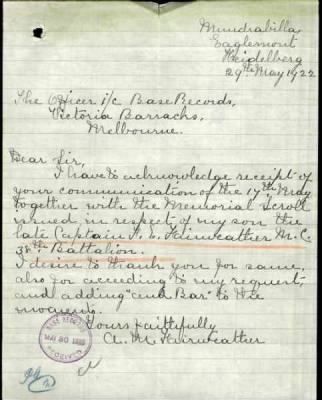 Mundrabilla
Eaglemont
Heidelberg
29th May 1922
The Officer i/c Base Records,
Victoria Barracks,
Melbourne.
Dear Sir,
I have to acknowledge receipt of
your communication of the 17th May
together with the Memorial Scroll
issued in respect of my son the
late Captain F. E. Fairweather M.C.
38th Battalion.
I desire to thank you for same,
also for acceeding to my request,
and adding "and Bar" to the
Yours faithfully
A. M. Fairweather
BASE RECORDS
MAY 30 1922